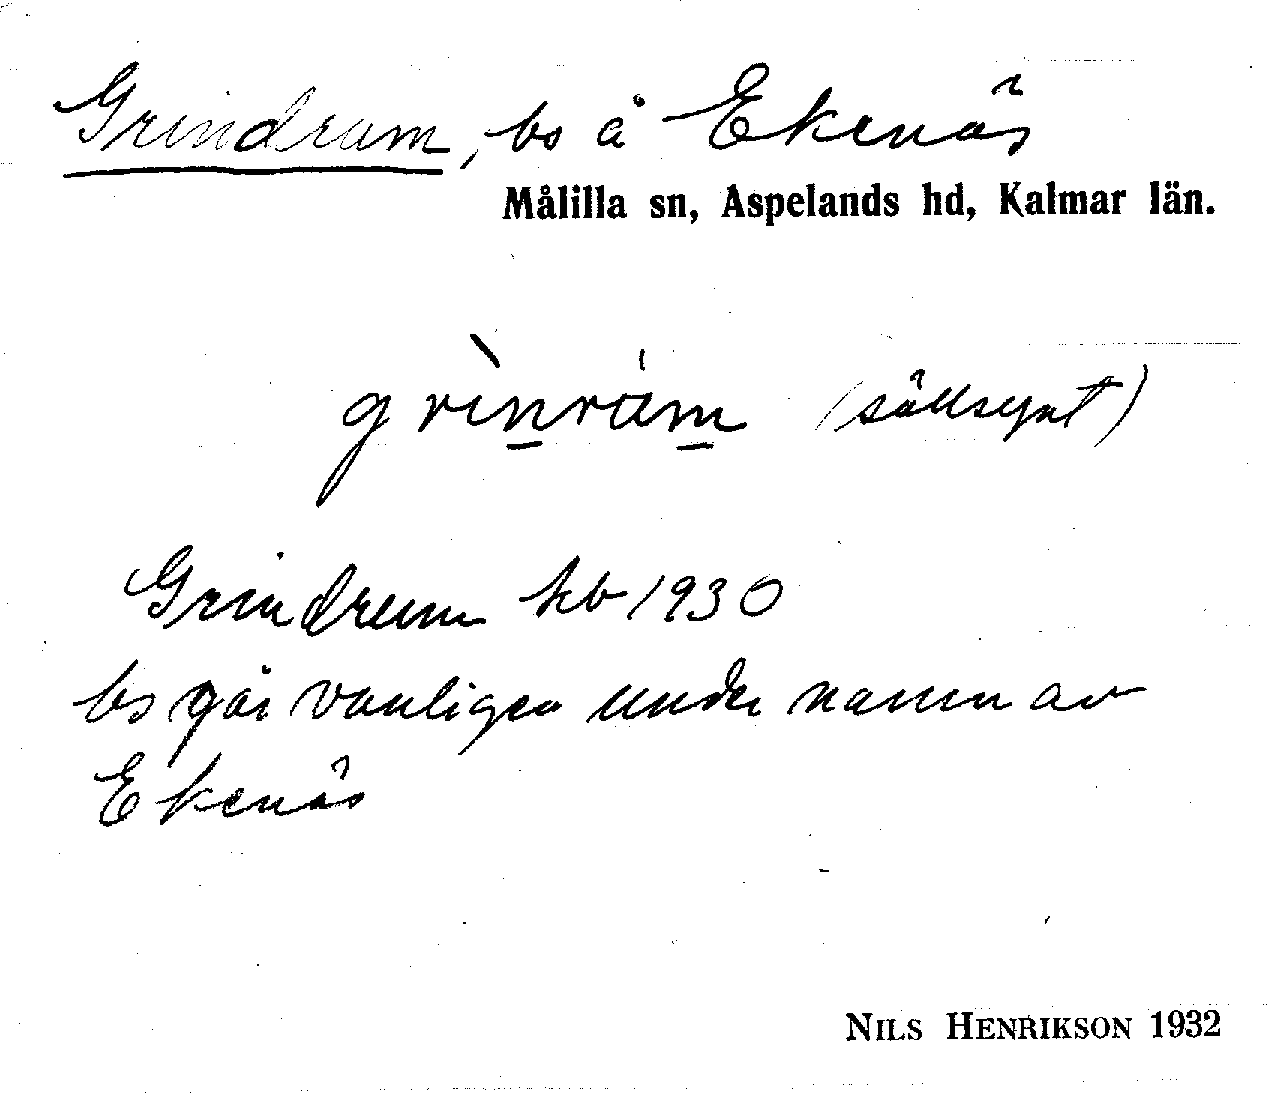 Grindrum, bs å Ekenäs
Målilla sn, Aspelands hd, Kalmar län.
grinrum (sällsynt)
Grindrum kb 1930
bs går vanligen under namn av
Ekenäs
NILS HENRIKSON 1932